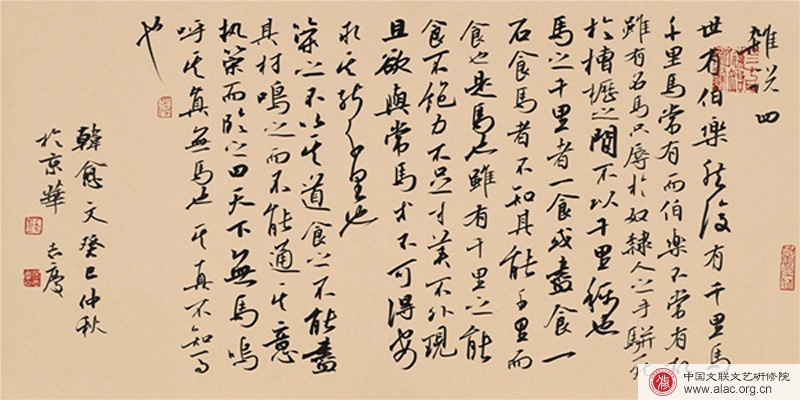 雜说四
世有伯樂然後有千里馬
千里馬常有而伯樂不常有故
雖有名馬只辱於奴隸人之手駢死
於槽櫪之間不以千里稱也
馬之千里者一食或盡食一
石食馬者不知其能千里而
食也是馬也雖有千里之能
食不飽力不足才美不外現
且欲與常馬才不可得安
求其能千里也
策之不以其道食之不能盡
其材鳴之而不能通其意
执策而臨之曰天下無馬嗚
呼其真無馬也其真不知馬
也
韓愈文癸巳仲秋
於京華 志慶
中国文联文艺研修院
www.alac.org.cn